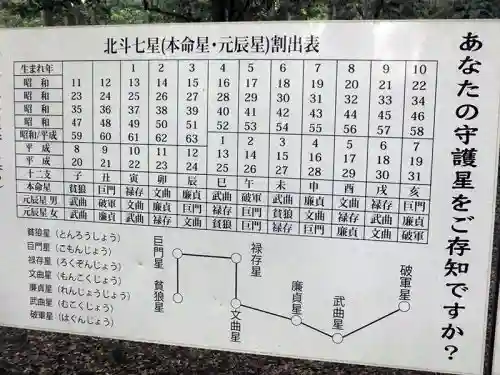 北斗七星(本命星・元辰星)割出表
生まれ年 1 2 3 4 5 6 7 8 9 10
昭和 11 12 13 14 15 16 17 18 19 20 21 22
昭和 23 24 25 26 27 28 29 30 31 32 33 34
昭和 35 36 37 38 39 40 41 42 43 44 45 46
昭和 47 48 49 50 51 52 53 54 55 56 57 58
昭和/平成 59 60 61 62 63 1 2 3 4 5 6 7
平成 8 9 10 11 12 13 14 15 16 17 18 19
平成 20 21 22 23 24 25 26 27 28 29 30 31
十二支 子 丑 寅 卯 辰 巳 午 未 申 酉 戌 亥
本命星 貪狼 巨門 禄存 文曲 廉貞 武曲 破軍 武曲 廉貞 文曲 禄存 巨門
元辰星 男 武曲 破軍 文曲 廉貞 巨門 禄存 巨門 貪狼 文曲 禄存 武曲 廉貞
元辰星 女 武曲 廉貞 武曲 禄存 文曲 貪狼 巨門 禄存 巨門 廉貞 文曲 破軍
貪狼星(とんろうしょう)
巨門星(こもんじょう)
禄存星(ろくぞんじょう)
文曲星(もんこくじょう)
廉貞星(れんじょうじょう)
武曲星(むこくじょう)
破軍星(はぐんじょう)
巨門星
貪狼星
禄存星
文曲星
廉貞星
武曲星
破軍星
あなたの守護星をご存知ですか?